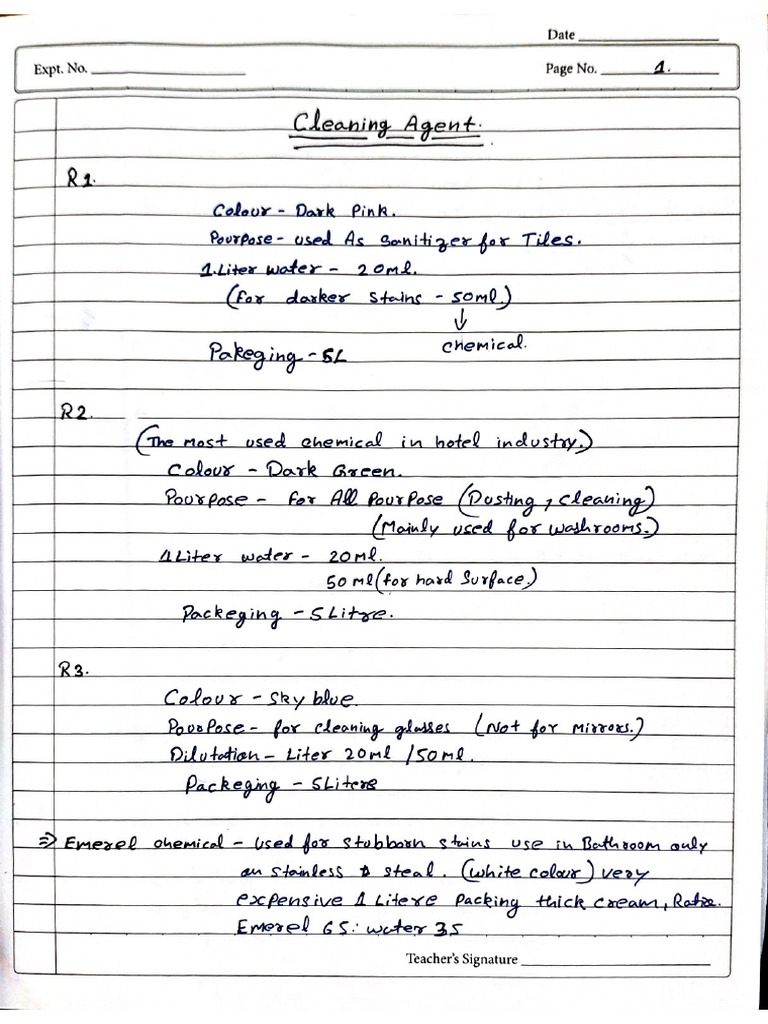 Date
Expt. No.
Page No. 1.
Cleaning Agent.
R1.
Colour - Dark Pink.
Pourpose - used As sanitizer for Tiles.
1.Liter water - 20ml.
(for darker stains - 50ml.)
↓
chemical.
Pakeging - 5L
R2.
(The most used chemical in hotel industry.)
Colour - Dark Green.
Pourpose - for All Pourpose (Dusting, cleaning)
(Mainly used for washrooms.)
1Liter water - 20ml.
50ml (for hard surface.)
Packeging - 5Litre.
R3.
Colour - sky blue.
Pourpose - for cleaning glasses (Not for mirrors.)
Dilutation - Liter 20ml / 50ml.
Packeging - 5Litere
⇒ Emerel chemical - used for stubborn stains use in Bathroom only
on stainless steal. (white colour) very
expensive 1 Litere packing thick cream, Ratio.
Emerel 65 : water 35
Teacher's Signature